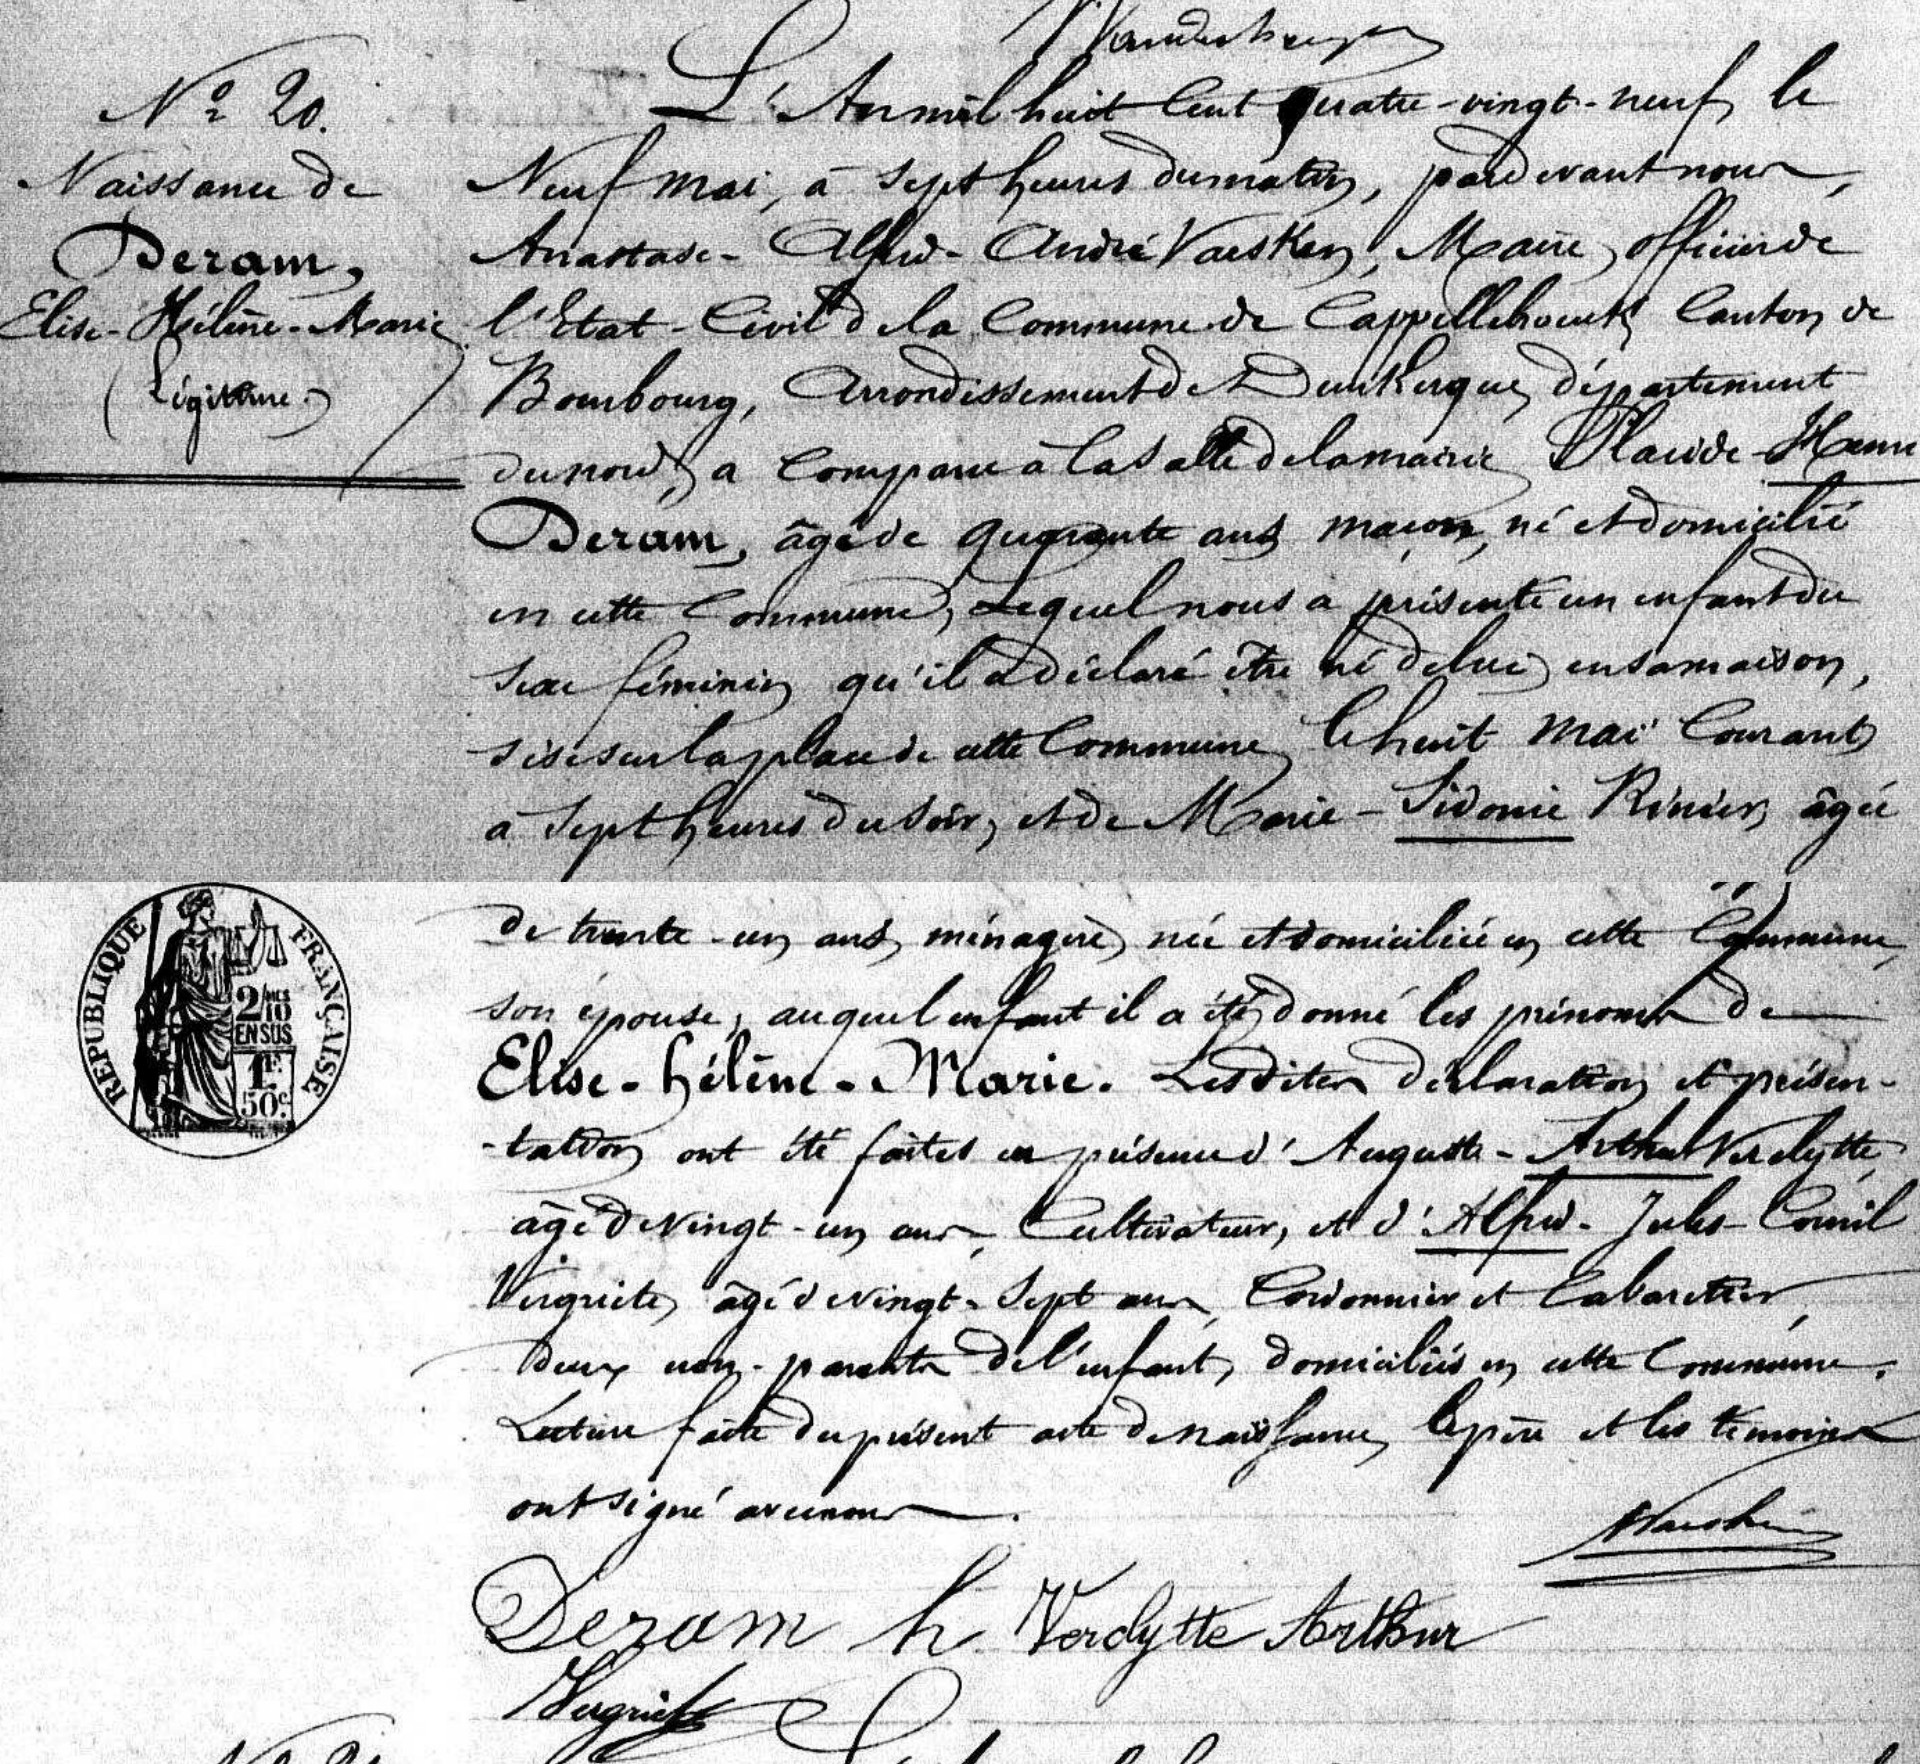 N° 20.
Naissance de
Deram,
Elise-Hélène-Marie
(Légitime.)
L'An mil huit Cent quatre-vingt-neuf, le
Neuf mai, à Sept heures du matin, pardevant nous,
Anastase-Alfred-André Vaesken, Maire, officier de
l'Etat-Civil de la Commune de Cappellebrouck, Canton de
Bourbourg, Arrondissement de Dunkerque, département
du nord, a Comparu à la Salle de la mairie Placide-Henri
Deram, âgé de quarante ans, maçon, né et domicilié
en cette Commune, Lequel nous a présenté un enfant du
Sexe féminin qu'il a déclaré être né de lui, en sa maison,
sise sur la place de cette Commune, le huit mai Courant,
à Sept heures du Soir, et de Marie-Sidonie Rénier, âgée
REPUBLIQUE FRANÇAISE
2/10
EN SUS
1F.
50c.
de trente-un ans, ménagère, née et domiciliée en cette Commune,
son épouse, auquel enfant il a été donné les prénoms de
Elise-hélène-Marie. Lesdites déclaration et présen-
-tation ont été faites en présence d'Auguste-Arthur Verclytte
âgé de vingt-un ans, Cultivateur, et d'Alfred-Jules-Cornil
Vergriete, âgé de vingt-Sept ans, Cordonnier et Cabaretier,
deux non-parents de l'enfant, domiciliés en cette Commune.
Lecture faite du présent acte de naissance, le père et les témoins
ont signé avec nous.
AVaesken
Deram h. Verclytte Arthur
Vergriete